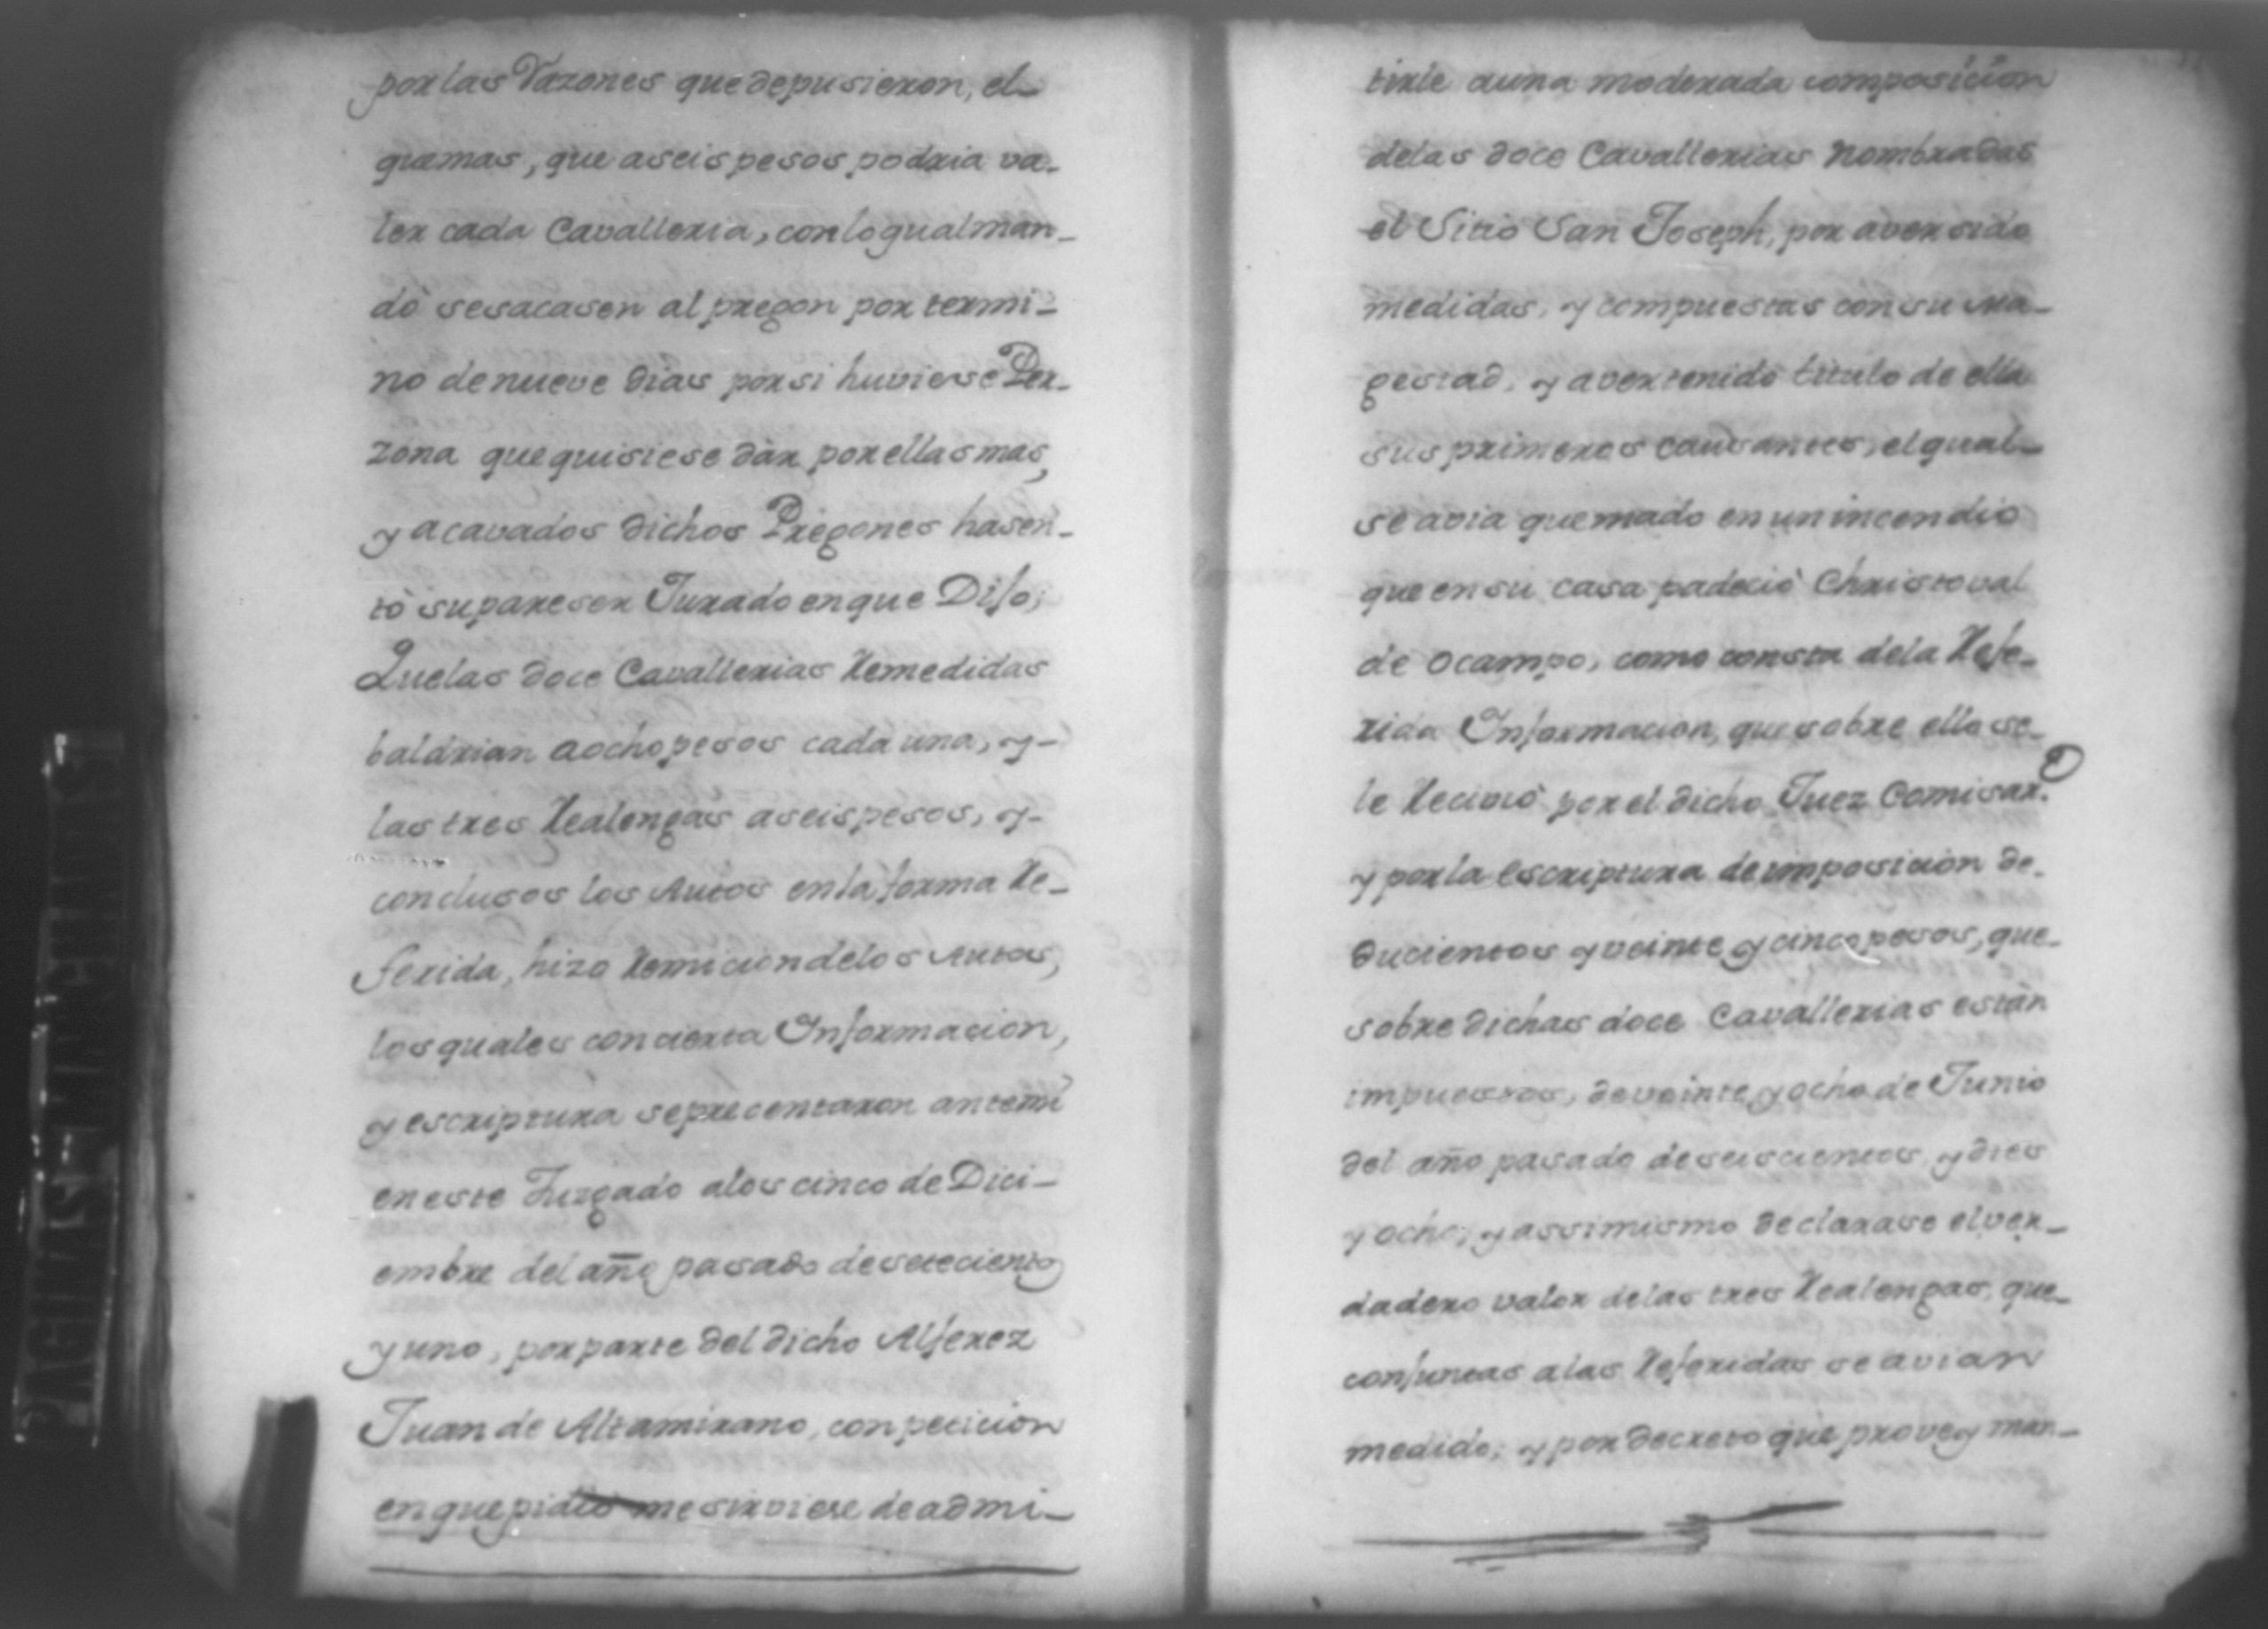 por las Razones que depusieron, el
que mas, que a seis pesos podria va-
ler cada Cavalleria, con lo qual man-
dò se sacasen al pregon por termi-
no de nueve dias por si huviese Per-
zona que quisiese dàr por ellas mas,
y acavados dichos Pregones hasen-
tò su pareser Jurado en que Dijo;
Que las doce Cavallerias Remedidas
baldrian a ocho pesos cada una, y-
las tres Realengas a seis pesos, y-
conclusos los Autos en la forma Re-
ferida, hizo Remicion de los Autos,
los quales con cierta Informacion,
y escriptura se precentaron ante mi
en este Juzgado a los cinco de Dici-
embre del año pasado de setecientos
y uno, por parte del dicho Alferez
Juan de Altamirano, con peticion
en que pidio me sirviese de admi-
tirle a una moderada composicion
de las doce Cavallerias nombradas
el Sitio San Joseph, por aver sido
medidas, y compuestas con su Ma-
gestad, y aver tenido titulo de ella
sus primeros causantes, el qual-
se avia quemado en un incendio
que en su casa padeciò Christoval
de Ocampo, como consta de la Refe-
rida Informacion, que sobre ello se-
le Reciviò por el dicho Juez Comisar.º
y por la escriptura de imposicion de-
ducientos y veinte y cinco pesos, que-
sobre dichas doce Cavallerias estàn
impuestos, de veinte y ocho de Junio
del año pasado de seiscientos, y dies
y ocho; y assimismo declarase el ver-
dadero valor de las tres Realengas, que-
conjuntas a las Referidas se avian
medido; y por decreto que provey man-